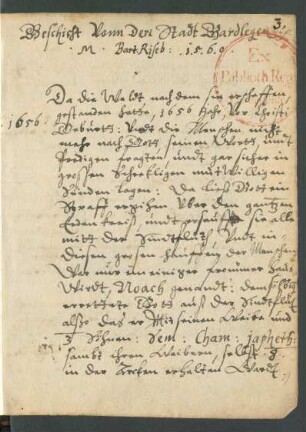 3.
Beschicht Vonn Der Stadt Gardlegen
M. Bart: Riseb: 1.5.6.0
Ex
Biblioth. Reg
Da die Weldt nach dem sie erschaffen
gestanden hatte, 1656 Jhar, Vor Christi
1656
Geburtt: Undt die Menschen nicht
mehr nach Gott, seinem Wortt, undt
Predigen fragten, undt gar sicher in
grossen Schrecklichen muttwilligen
Sünden lagen: Da ließ Gott ein
Straff ergehen Uber den gantzen
Erdenkreis, undt ersauffte sie alle
mitt der Sündtflutt: Undt in
diesen grosen hauffen der Menschen
War nur ein einiger frommer haus
Wirdt, Noach genandt: demselbigen
errettete Gott auß der Sündtflutt
also das er Mitt seinem Weibe und
3 Söhnen: Sem: Cham: Japheth:
sambt ihren Weibern, selbst: 8
in der Archen erhalten Wardt.